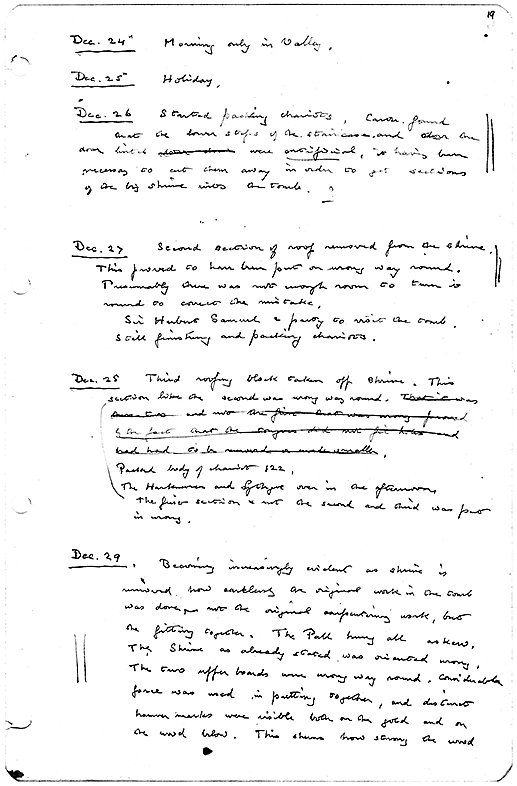 19
Dec. 24th Morning only in Valley.
Dec. 25th Holiday.
Dec. 26 Started packing chariots. Carter found
that the lower steps of the staircase and also the
door lintel were artificial, it having been
necessary to cut them away in order to get sections
of the big shrine into the tomb. ?
Dec. 27 Second section of roof removed from the shrine.
This proved to have been put on wrong way round.
Presumably there was not enough room to turn it
round to correct the mistake.
Sir Herbert Samuel & party to visit the tomb.
Still finishing and packing chariots.
Dec. 28 Third roofing block taken off shrine. This
section like the second was wrong way round. That it was
and not the first that was wrong proved
by the fact that the tongues did not fit holes and
had had to be removed or made smaller.
Packed body of chariot 122.
The Harknesses and Lythgoe over in the afternoon
The first section & not the second and third was put
in wrong.
Dec. 29. Becoming increasingly evident as shrine is
removed how carelessly the original work in the tomb
was done, not the original carpentering work, but
the fitting together. The Pall hung all askew.
The Shrine as already stated was oriented wrong.
The two upper boards were wrong way round. Considerable
force was used in putting together, and distinct
hammer marks were visible both on the gold and on
the wood below. This shows how strong the wood